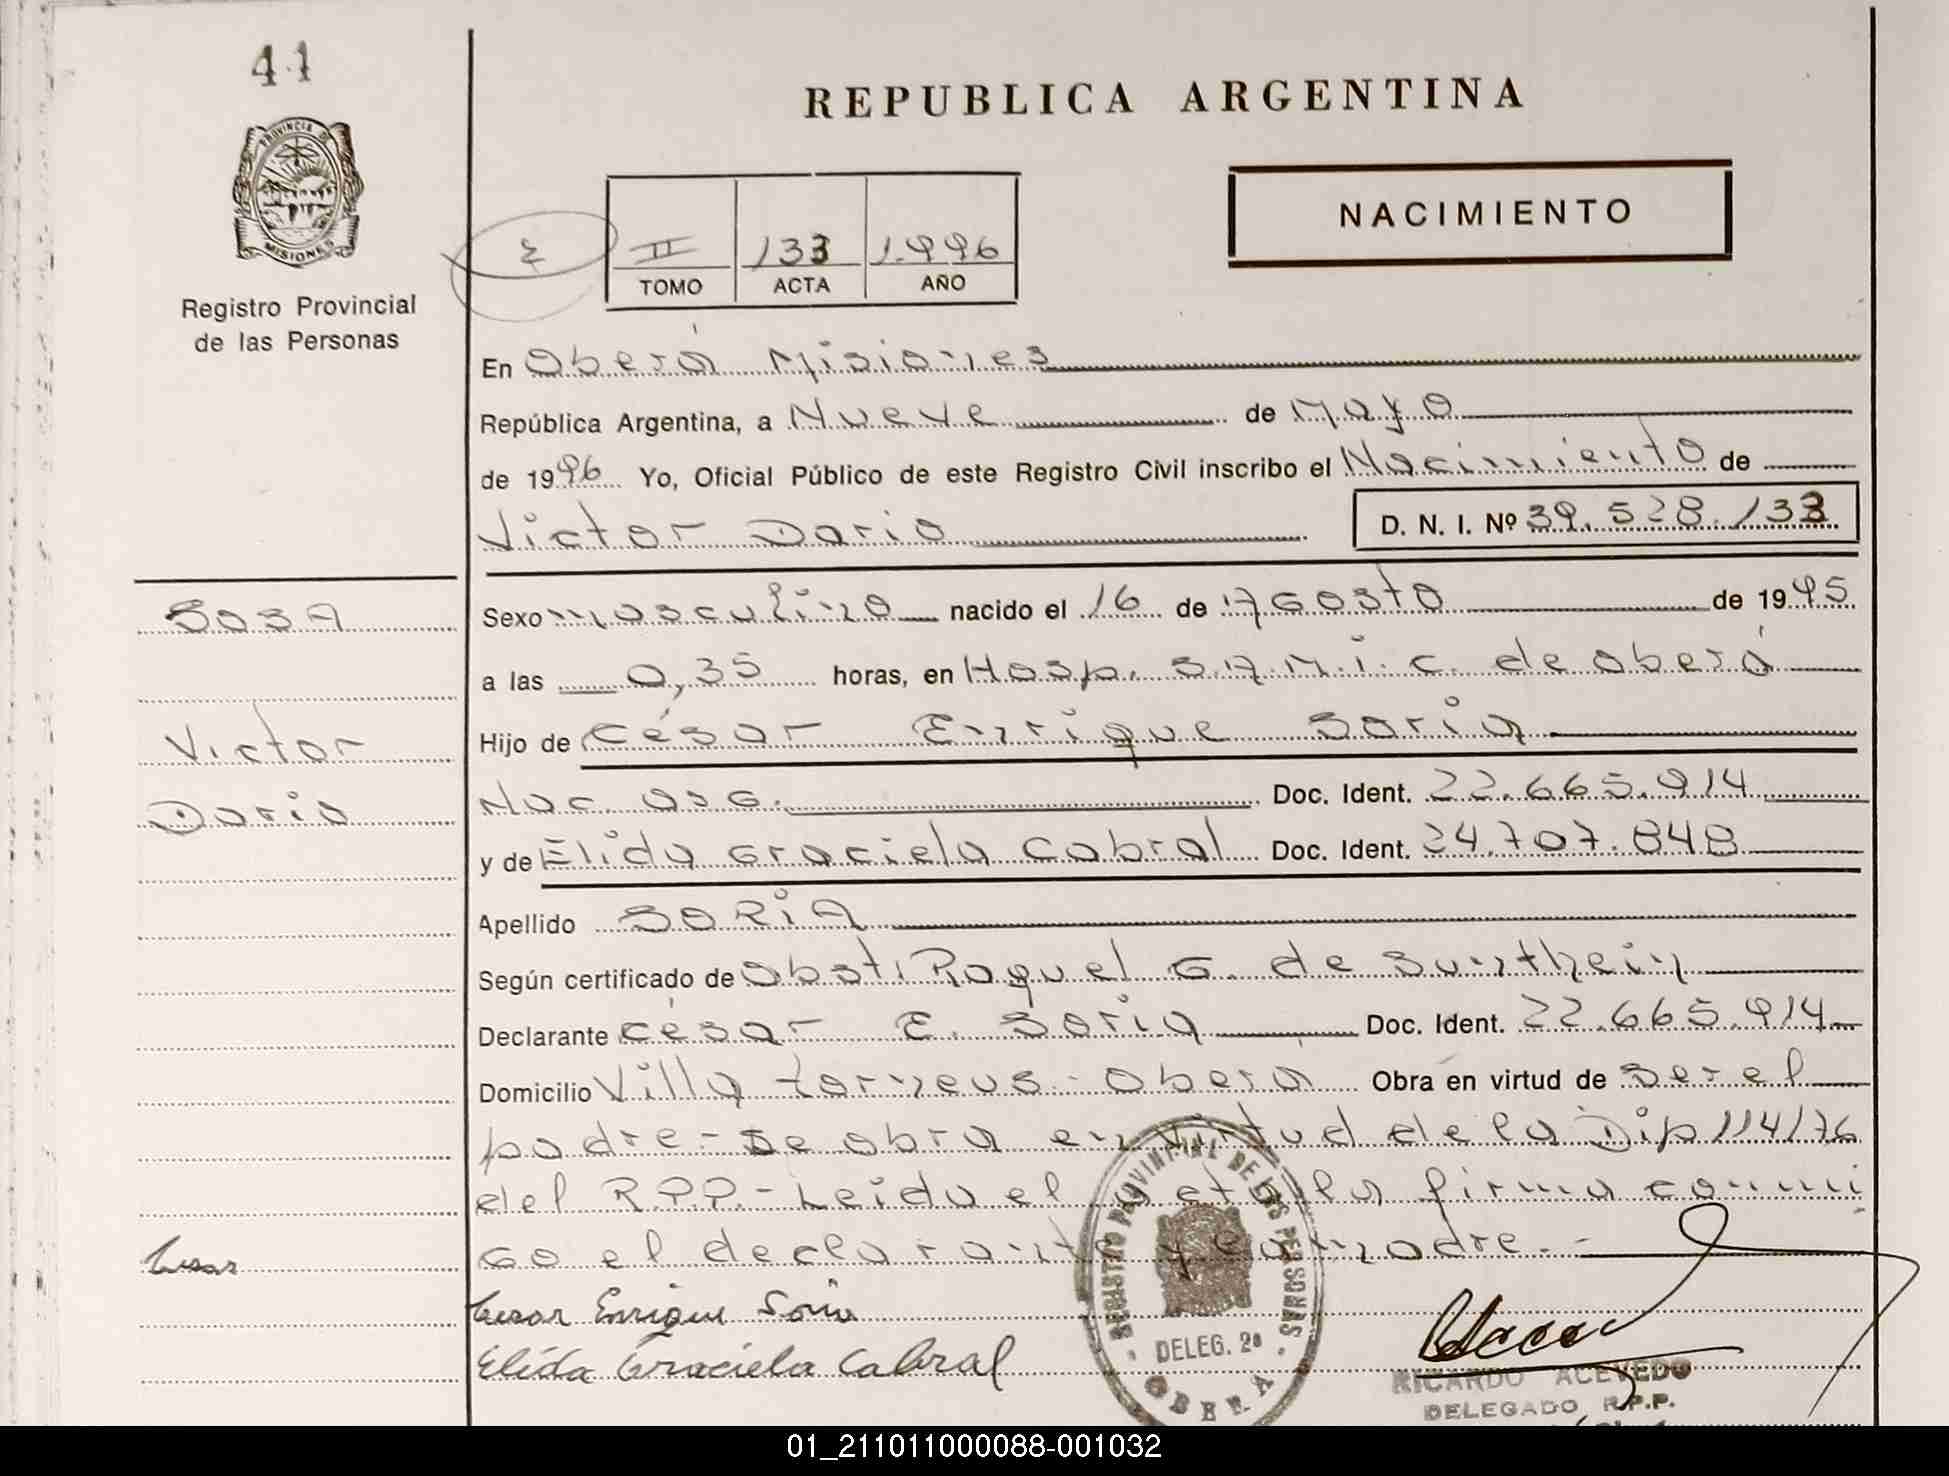 41
PROVINCIA DE
MISIONES
Registro Provincial
de las Personas
REPUBLICA ARGENTINA
NACIMIENTO
II 133 1.996
TOMO ACTA AÑO
En Oberá Misiones
República Argentina, a Nueve de Mayo
de 1996 Yo, Oficial Público de este Registro Civil inscribo el Nacimiento de
Victor Dario D. N. I. Nº 39.528.133
SOSA
Victor
Dario
Sexo masculino nacido el 16 de AGosto de 1995
a las 0,35 horas, en Hosp. S.A.M.i.c. de oberá
Hijo de César Enrique Soria
Nac. arG. Doc. Ident. 22.665.914
y de Elida Graciela Cabral Doc. Ident. 24.707.848
Apellido SORiA
Según certificado de obst. Raquel G. de Sunthein
Declarante césar E. Soria Doc. Ident. 22.665.914
Domicilio Villa torneus - oberá Obra en virtud de ser el
padre - se obra en virtud de la Dip 114/76
del R.P.P. - Leida el acta la firma conmi
Go el declarante y la madre. -
Cesar
Cesar Enrique Soria
Elida Graciela Cabral
REGISTRO PROVINCIAL DE LAS PERSONAS
DELEG. 2ª
OBERA
RICARDO ACEVEDO
DELEGADO R.P.P.
01_211011000088-001032